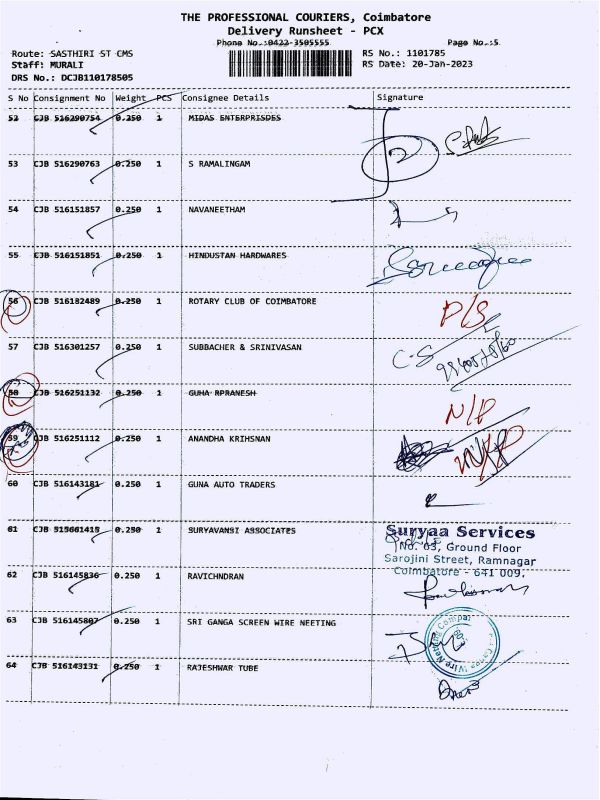 THE PROFESSIONAL COURIERS, Coimbatore
Delivery Runsheet - PCX
Phone No.:0422-3505555 Page No.:5
Route: SASTHIRI ST CMS RS No.: 1101785
Staff: MURALI RS Date: 20-Jan-2023
DRS No.: DCJB110178505
S No Consignment No Weight PCS Consignee Details Signature
52 CJB 516290754 0.250 1 MIDAS ENTERPRISDES
53 CJB 516290763 0.250 1 S RAMALINGAM
54 CJB 516151857 0.250 1 NAVANEETHAM
55 CJB 516151851 0.250 1 HINDUSTAN HARDWARES
56 CJB 516182489 0.250 1 ROTARY CLUB OF COIMBATORE D/S
57 CJB 516301257 0.250 1 SUBBACHER & SRINIVASAN C-S
58 CJB 516251132 0.250 1 GUHA RPRANESH N/P
59 CJB 516251112 0.250 1 ANANDHA KRIHSNAN
60 CJB 516143181 0.250 1 GUNA AUTO TRADERS
61 CJB 515661415 0.250 1 SURYAVANSI ASSOCIATES
Suryaa Services
No. 63, Ground Floor
Sarojini Street, Ramnagar
Coimbatore - 641 009.
62 CJB 516145836 0.250 1 RAVICHNDRAN
63 CJB 516145807 0.250 1 SRI GANGA SCREEN WIRE NEETING
64 CJB 516143131 0.250 1 RAJESHWAR TUBE